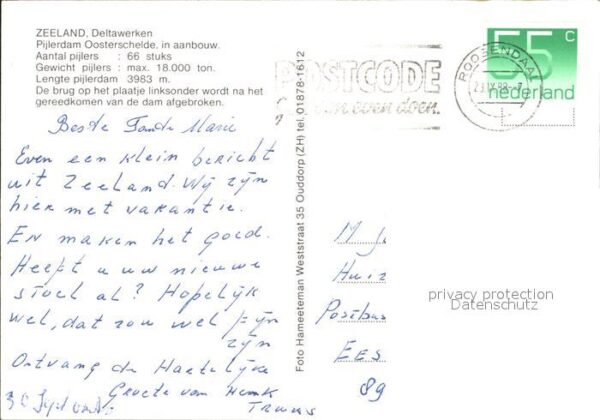 ZEELAND, Deltawerken
Pijlerdam Oosterschelde, in aanbouw.
Aantal pijlers : 66 stuks
Gewicht pijlers : max. 18.000 ton.
Lengte pijlerdam 3983 m.
De brug op het plaatje linksonder wordt na het
gereedkomen van de dam afgebroken.
Beste Tante Marie
Even een klein bericht
uit Zeeland. Wij zijn
hier met vakantie.
En maken het goed.
Heeft u uw nieuwe
stoel al? Hopelijk
wel, dat zou wel fijn
zijn
Ontvang de Hartelijke
Groete van Henk
Truus
Foto Hameeteman Weststraat 35 Ouddorp (ZH) tel. 01878-1612
POSTCODE
even doen.
ROOSENDAAL
55 c
nederland
M
Huiz
Postbus
EES
89
privacy protection
Datenschutz